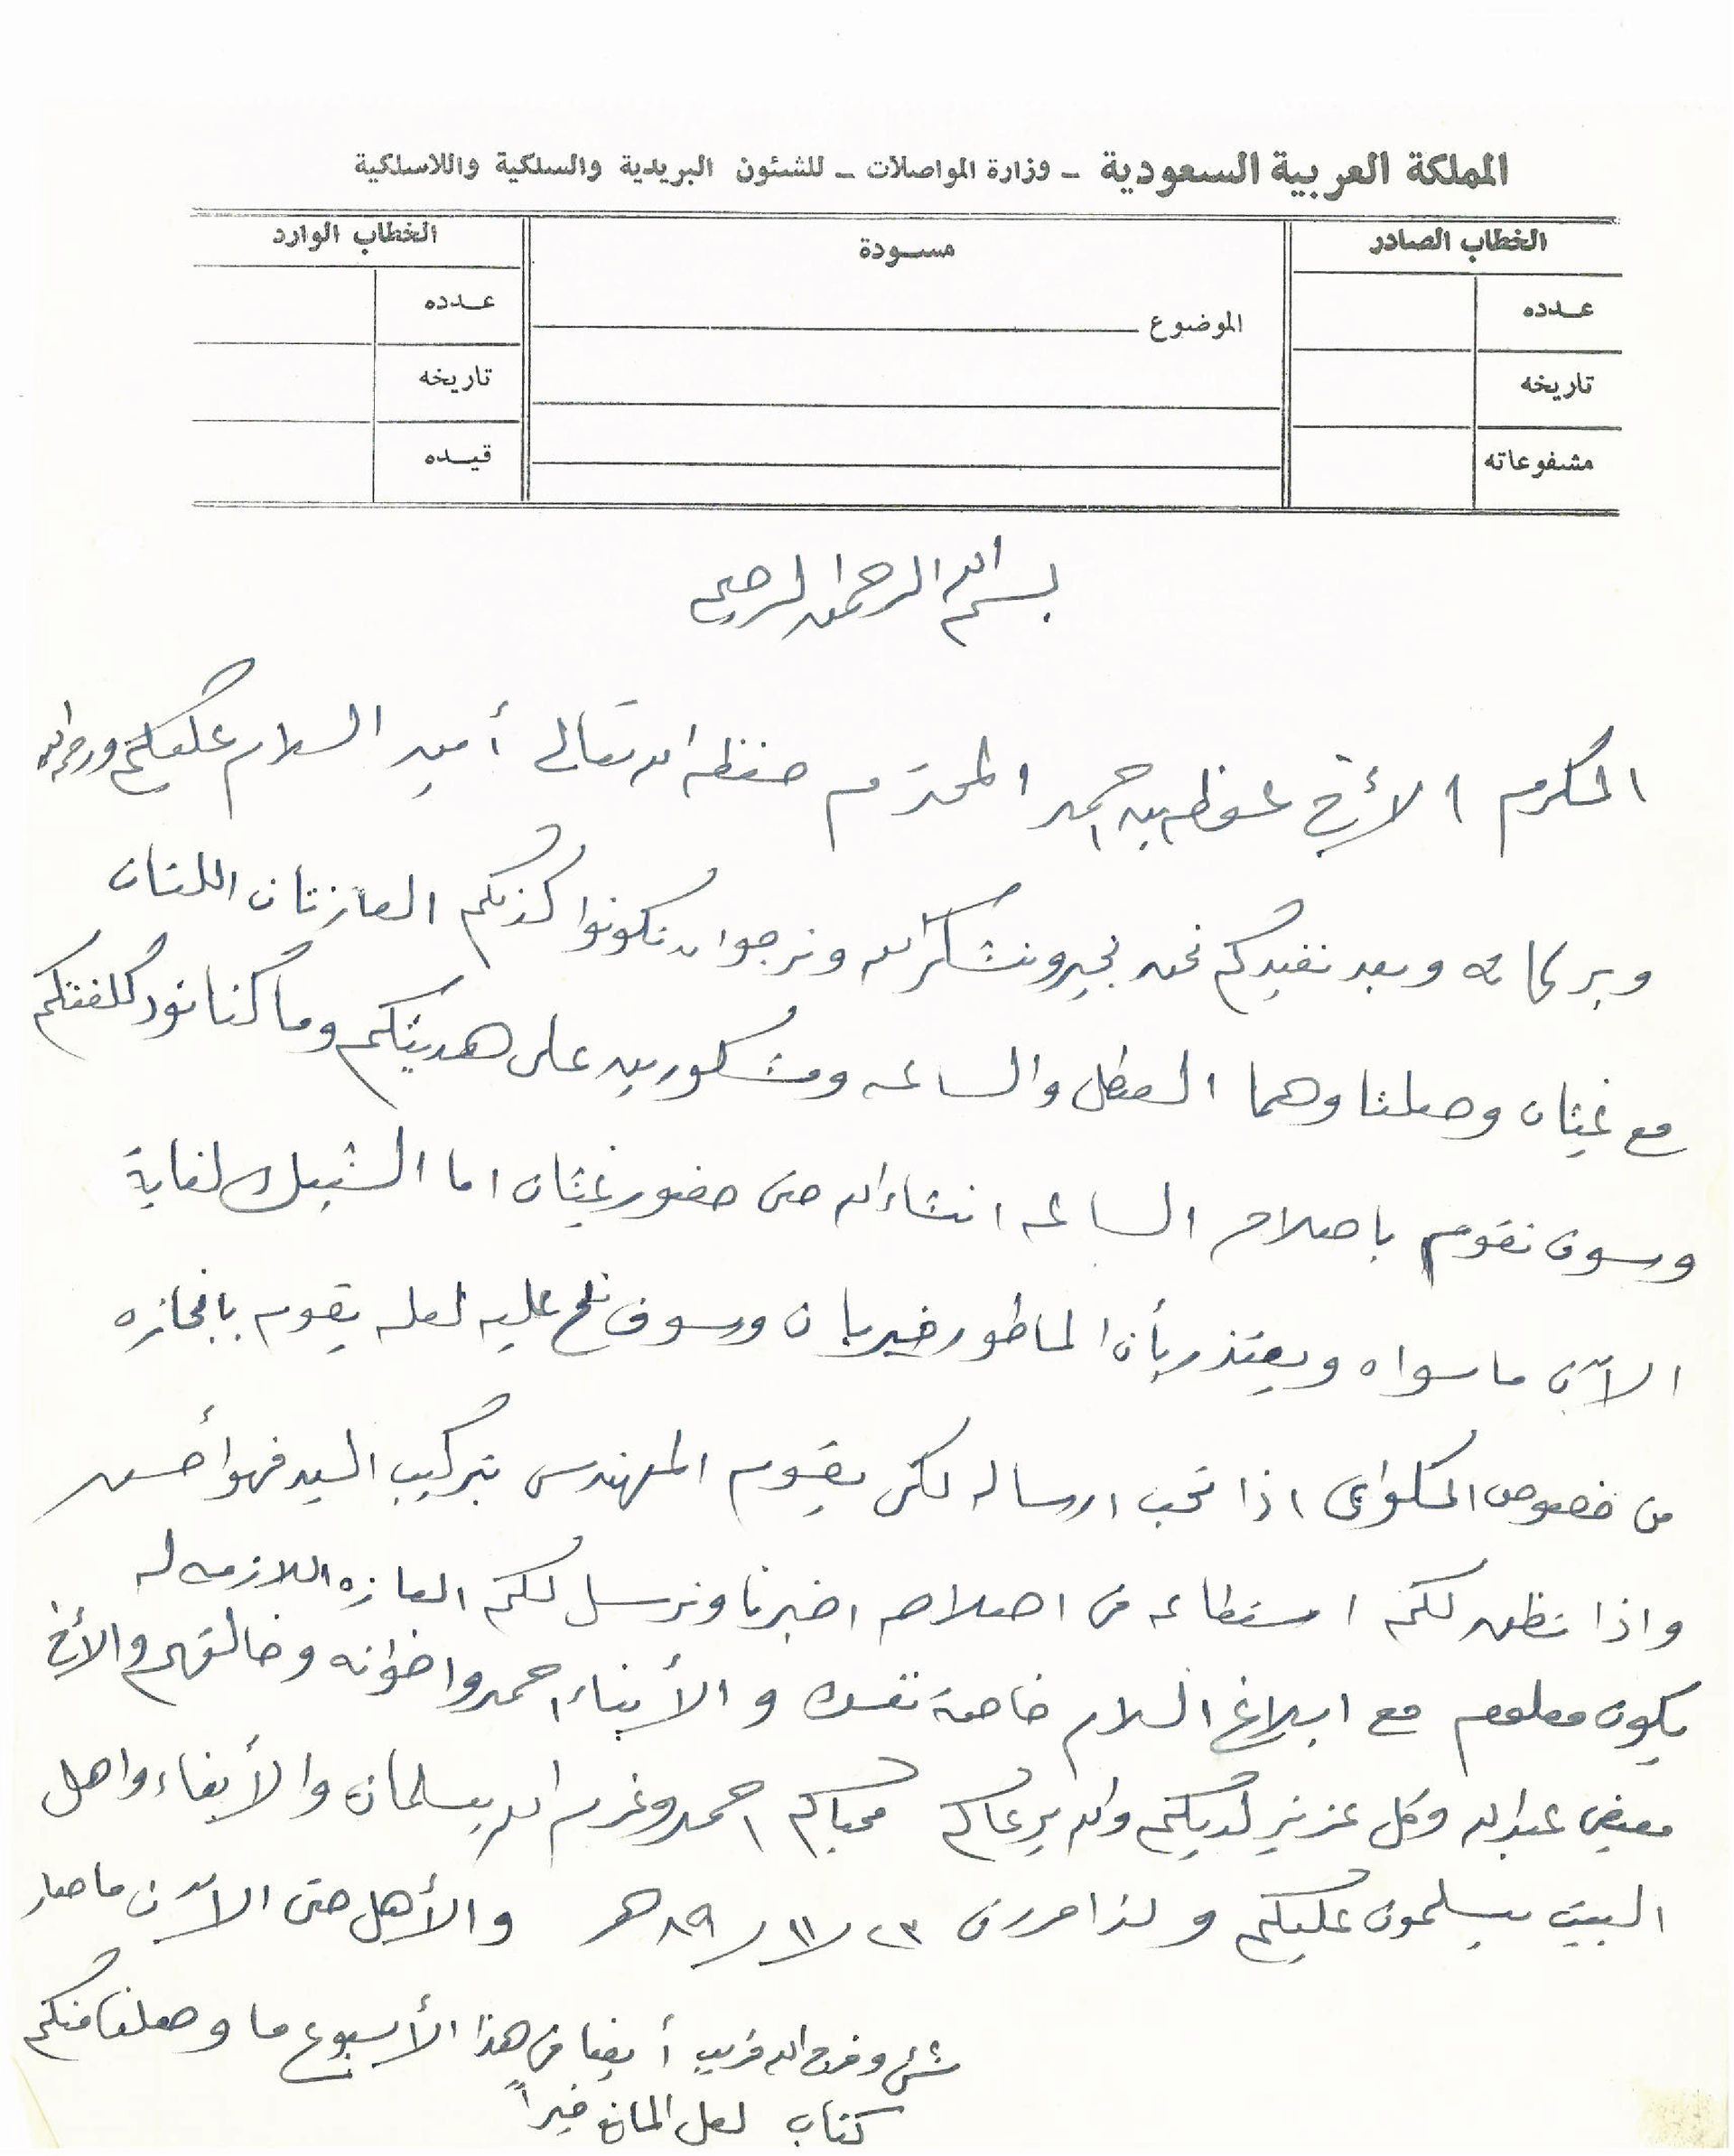 المملكة العربية السعودية - وزارة المواصلات - للشئون البريدية والسلكية واللاسلكية
الخطاب الصادر
عدده
تاريخه
مشفوعاته
مسودة
الموضوع
الخطاب الوارد
عدده
تاريخه
قيده
بسم الله الرحمن الرحيم
المكرم الأخ عوظه بن احمد المحترم حفظه الله تعالى أمين السلام عليكم ورحمة الله
وبركاته وبعد نفيدكم نحن بخير ونشكر الله ونرجوا ان تكونوا كذلكم العازتان اللتان
مع غيثان وصلتنا وهما العطل والساعه ومشكورين على هديتكم وما كنا نود كلفتكم
وسوف نقوم باصلاح الساعه انشاء الله حتى حضور غيثان اما الشبك لغاية
الآن ما سواه ويعتذر بأن الماطور خيربان وسوف نلح عليه لعله يقوم بانجازه
من خصوص المكواى اذا تحب ارساله لكى يقوم المهندس بتركيب السيد فهوا أحسن
واذا تظهر لكم استطاعه فى اصلاحه اخبرنا ونرسل لكم العازه اللازمه له
يكون معلوم مع ابلاغ السلام خاصة نفسك والأبناء احمد واخوانه وخالتهم والأخ
معيض عبد الله وكل عزيز لديكم والله يرعاكم محباكم احمد وغرم الله بسلمان والأبناء واهل
البيت يسلمون عليكم ولذا حررفى ٢٣/١١/٨٩هـ والأهل حتى الآن ما صار
شئ وفرج الله قريب أيضا فى هذا الأسبوع ما وصلنا منكم
كتاب لعل المانع خيراً